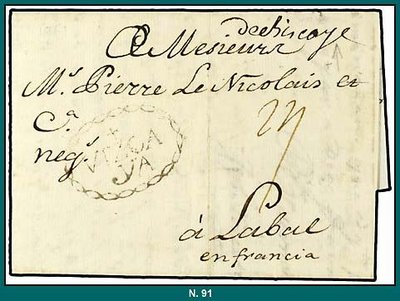 de ehiscaye
A Mesieurs
Ms. Pierre Le Nicolais et
Ca.
negs.
VIZCA
YA
à Labal
en francia
N. 91